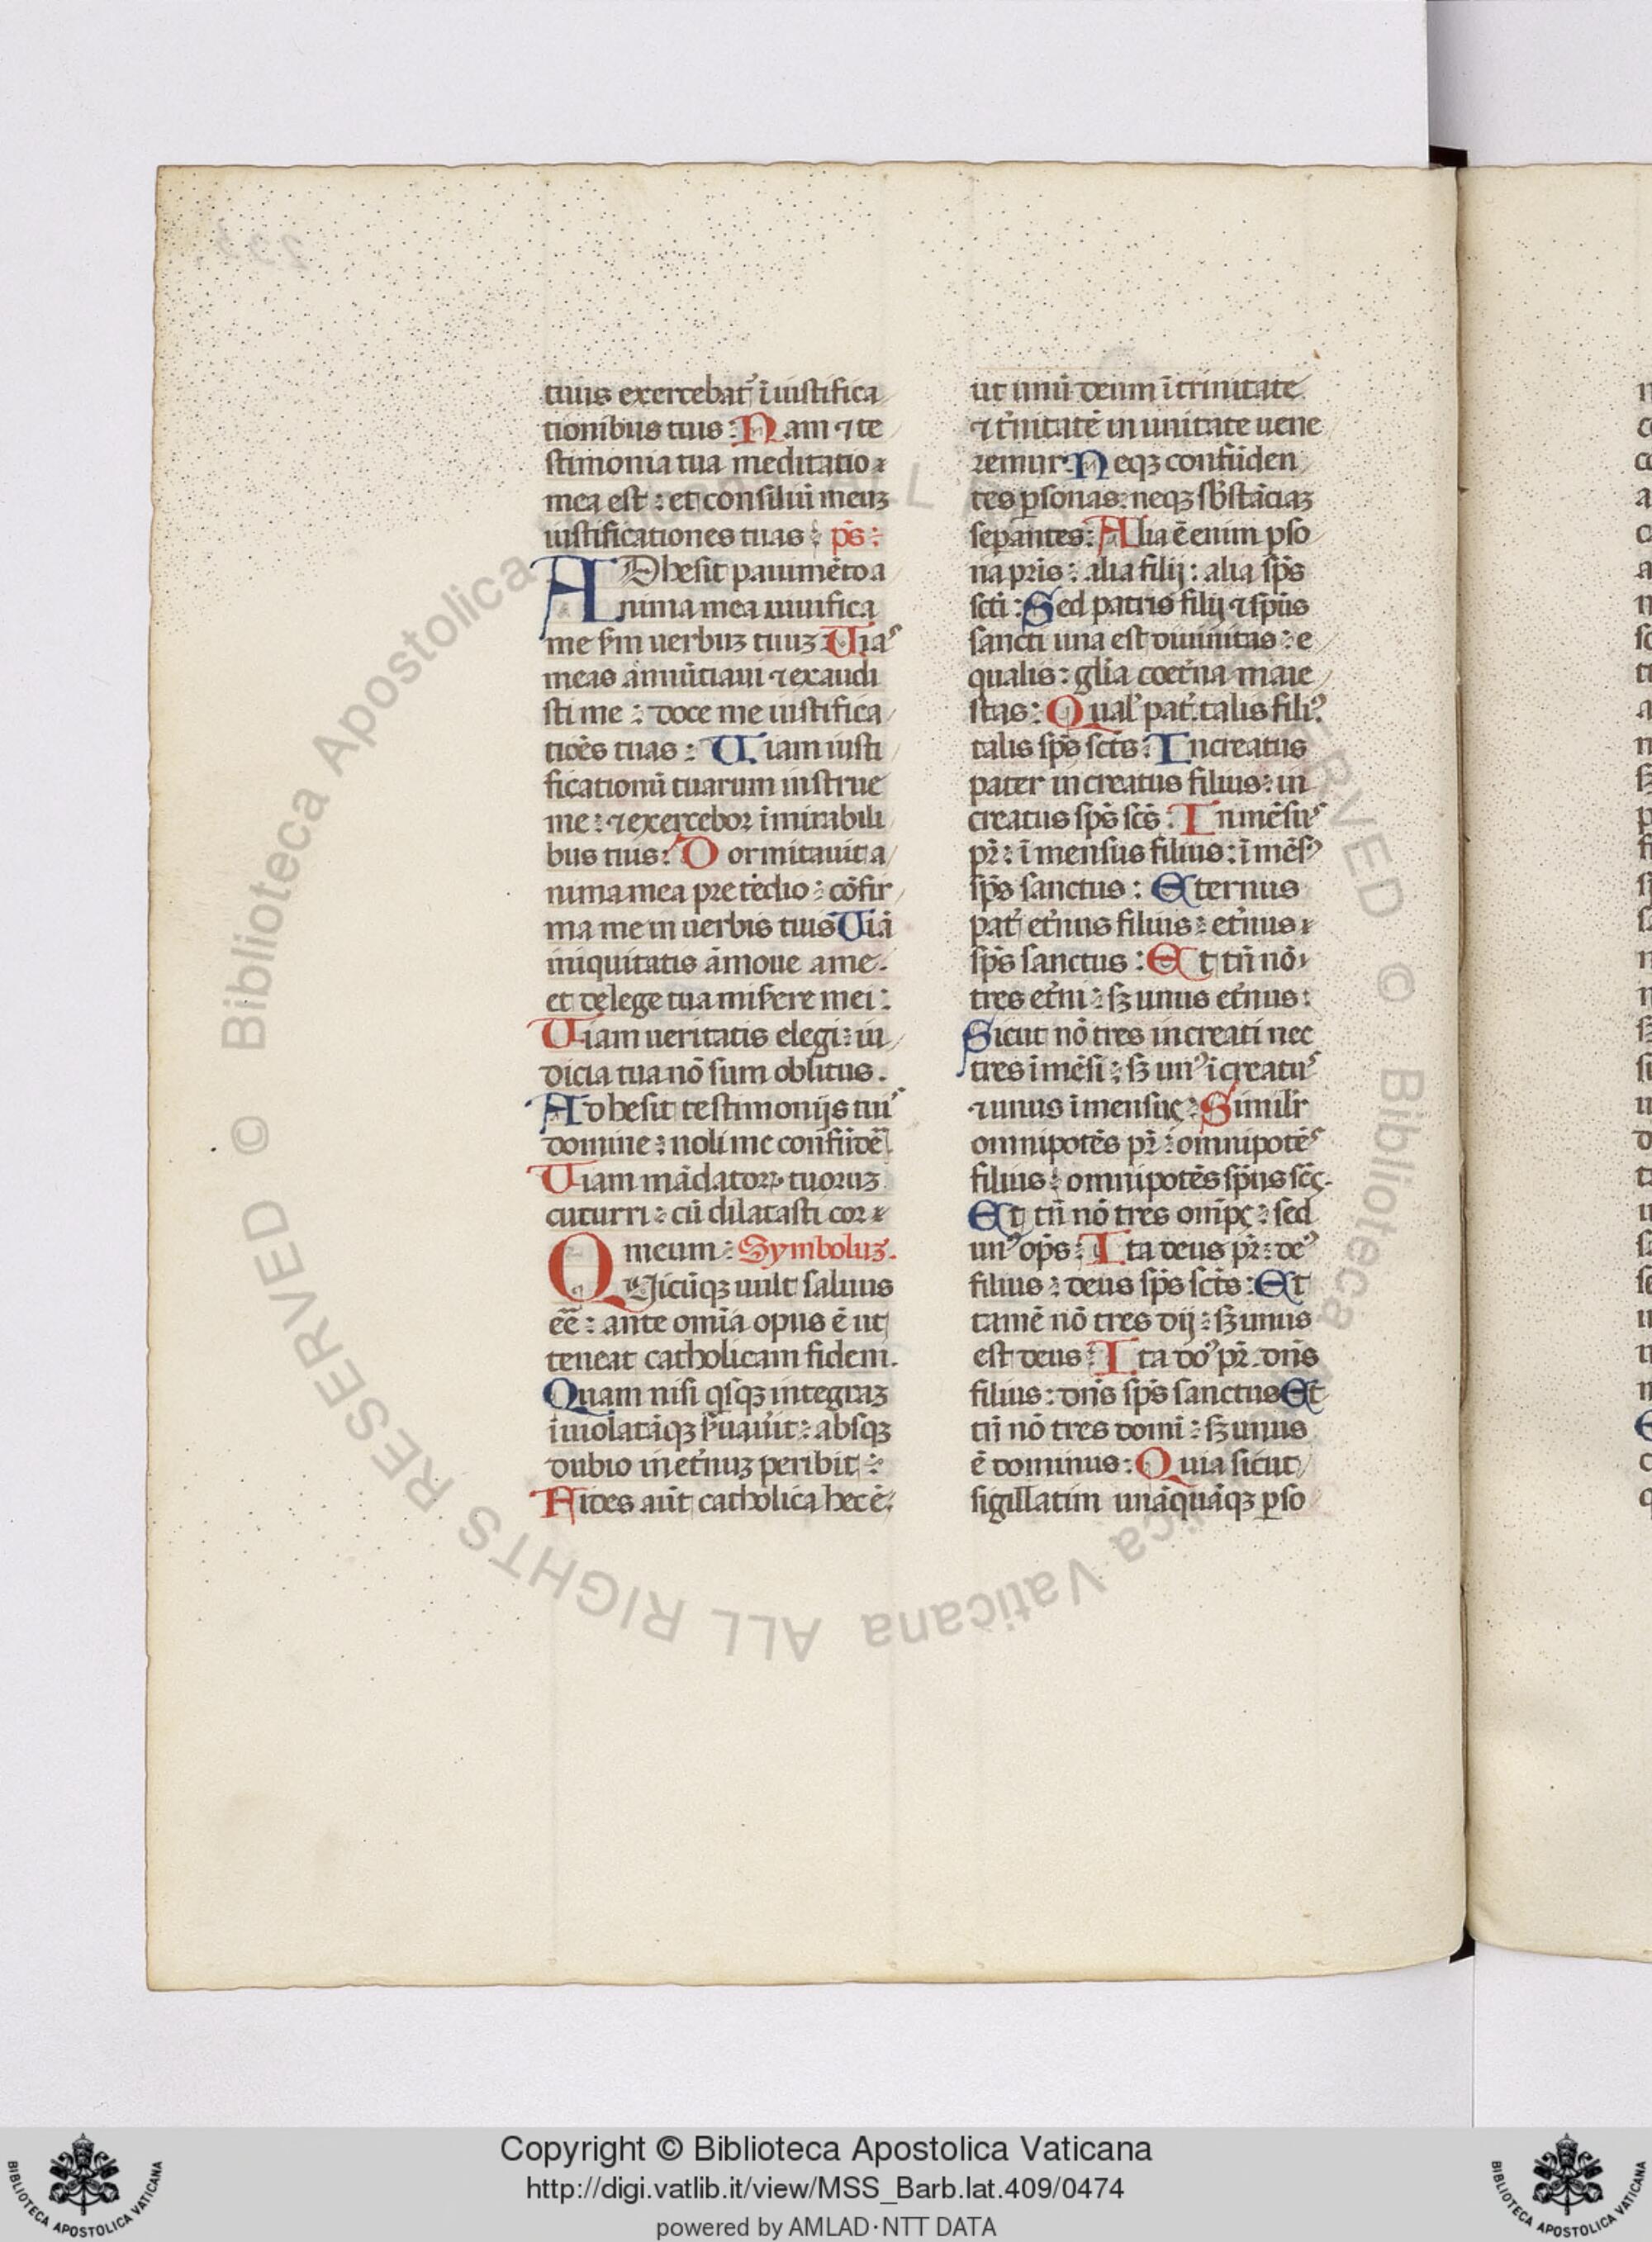 tuus exercebat᷒ ī iustifica
tionibus tuis : Nam ⁊ te
stimonia tua meditatio
mea est : et consiliū meuꝫ
iustificationes tuas : ps̄ :
ADhesit pauimēto a
nima mea uiuifica
me ẜm uerbuꝫ tuuꝫ Uias
meas ānūtiaui ⁊ exaudi
sti me : doce me iustifica
tioēs tuas : Uiam iusti
ficationū tuarum instrue
me : ⁊ exercebor ī mirabili
bus tuis : Dormitauit a
nima mea pre tedio : cōfir
ma me in uerbis tuis Uiā
iniquitatis āmoue a me .
et de lege tua miẜere mei :
Uiam ueritatis elegi : iu
dicia tua nō sum oblitus .
Adhesi testimonijs tuis
domine : noli me confūdē
Uiam mādatoꝝ tuoruꝫ
cucurri : cū dilatasti cor
meum : Symboluꝫ .
QUicūqꝫ uult saluus
eē : ante omīa opus ē ut
teneat catholicam fidem .
Quam nisi qisqꝫ integraꝫ
īuiolatāqꝫ ẜuau̓it : absqꝫ
dubio in et̓nuꝫ peribit :
Fides aūt catholica hec ē :
ut unū deum ī trinitate
⁊ t̓nitatē in unitate uene
remur . Neqꝫ confūden
tes ꝑsonas : neqꝫ sb̓stāciaꝫ
sepantes : Alia ē enim ꝑso
na pr̄is : alia filij : alia sp̄s
scti : Sed patris filij ⁊ sp̄us
sancti una est diuinitas : e
qualis : gl̓ia coet̓na maie
stas : Qual᷒ pat᷒ . talis fili᷒
talis sp̄s scts : Increatus
pater increatus filius : in
creatus sp̄s scs̄ : Inmēsus
pr̄ : īmensus filius : īmēs᷒
sp̄s sanctus : Eternus
pat᷒ et̓nus filius : et̓nus
sp̄s sanctus : Et tn̄ nō
tres et̓ni : sꝫ unus et̓nus :
Sicut nō tres increati nec
tres īmēsi : sꝫ un᷒ īcreatus
⁊ unus īmensus : Simil̓r
omnipotēs pr̄ : omnipotēs
filius : omnipotēs sp̄us scs̄ .
Et tn̄ nō tres omīps : sed
un᷒ op̄s : Ita deus pr̄ : de᷒
filius : deus sp̄s scts̄ : Et
tamē nō tres dij : sꝫ unus
est deus : Ita do᷒ pr̄ . dn̄s
filius : dn̄s sp̄s sanctus Et
tn̄ nō tres domī : sꝫ unus
ē dominus : Quia sicut
sigillatim unāquāqꝫ ꝑso
Copyright © Biblioteca Apostolica Vaticana
http://digi.vatlib.it/view/MSS_Barb.lat.409/0474
powered by AMLAD·NTT DATA
© Biblioteca Apostolica Vaticana ALL RIGHTS RESERVED
BIBLIOTECA APOSTOLICA VATICANA
BIBLIOTECA APOSTOLICA VATICANA